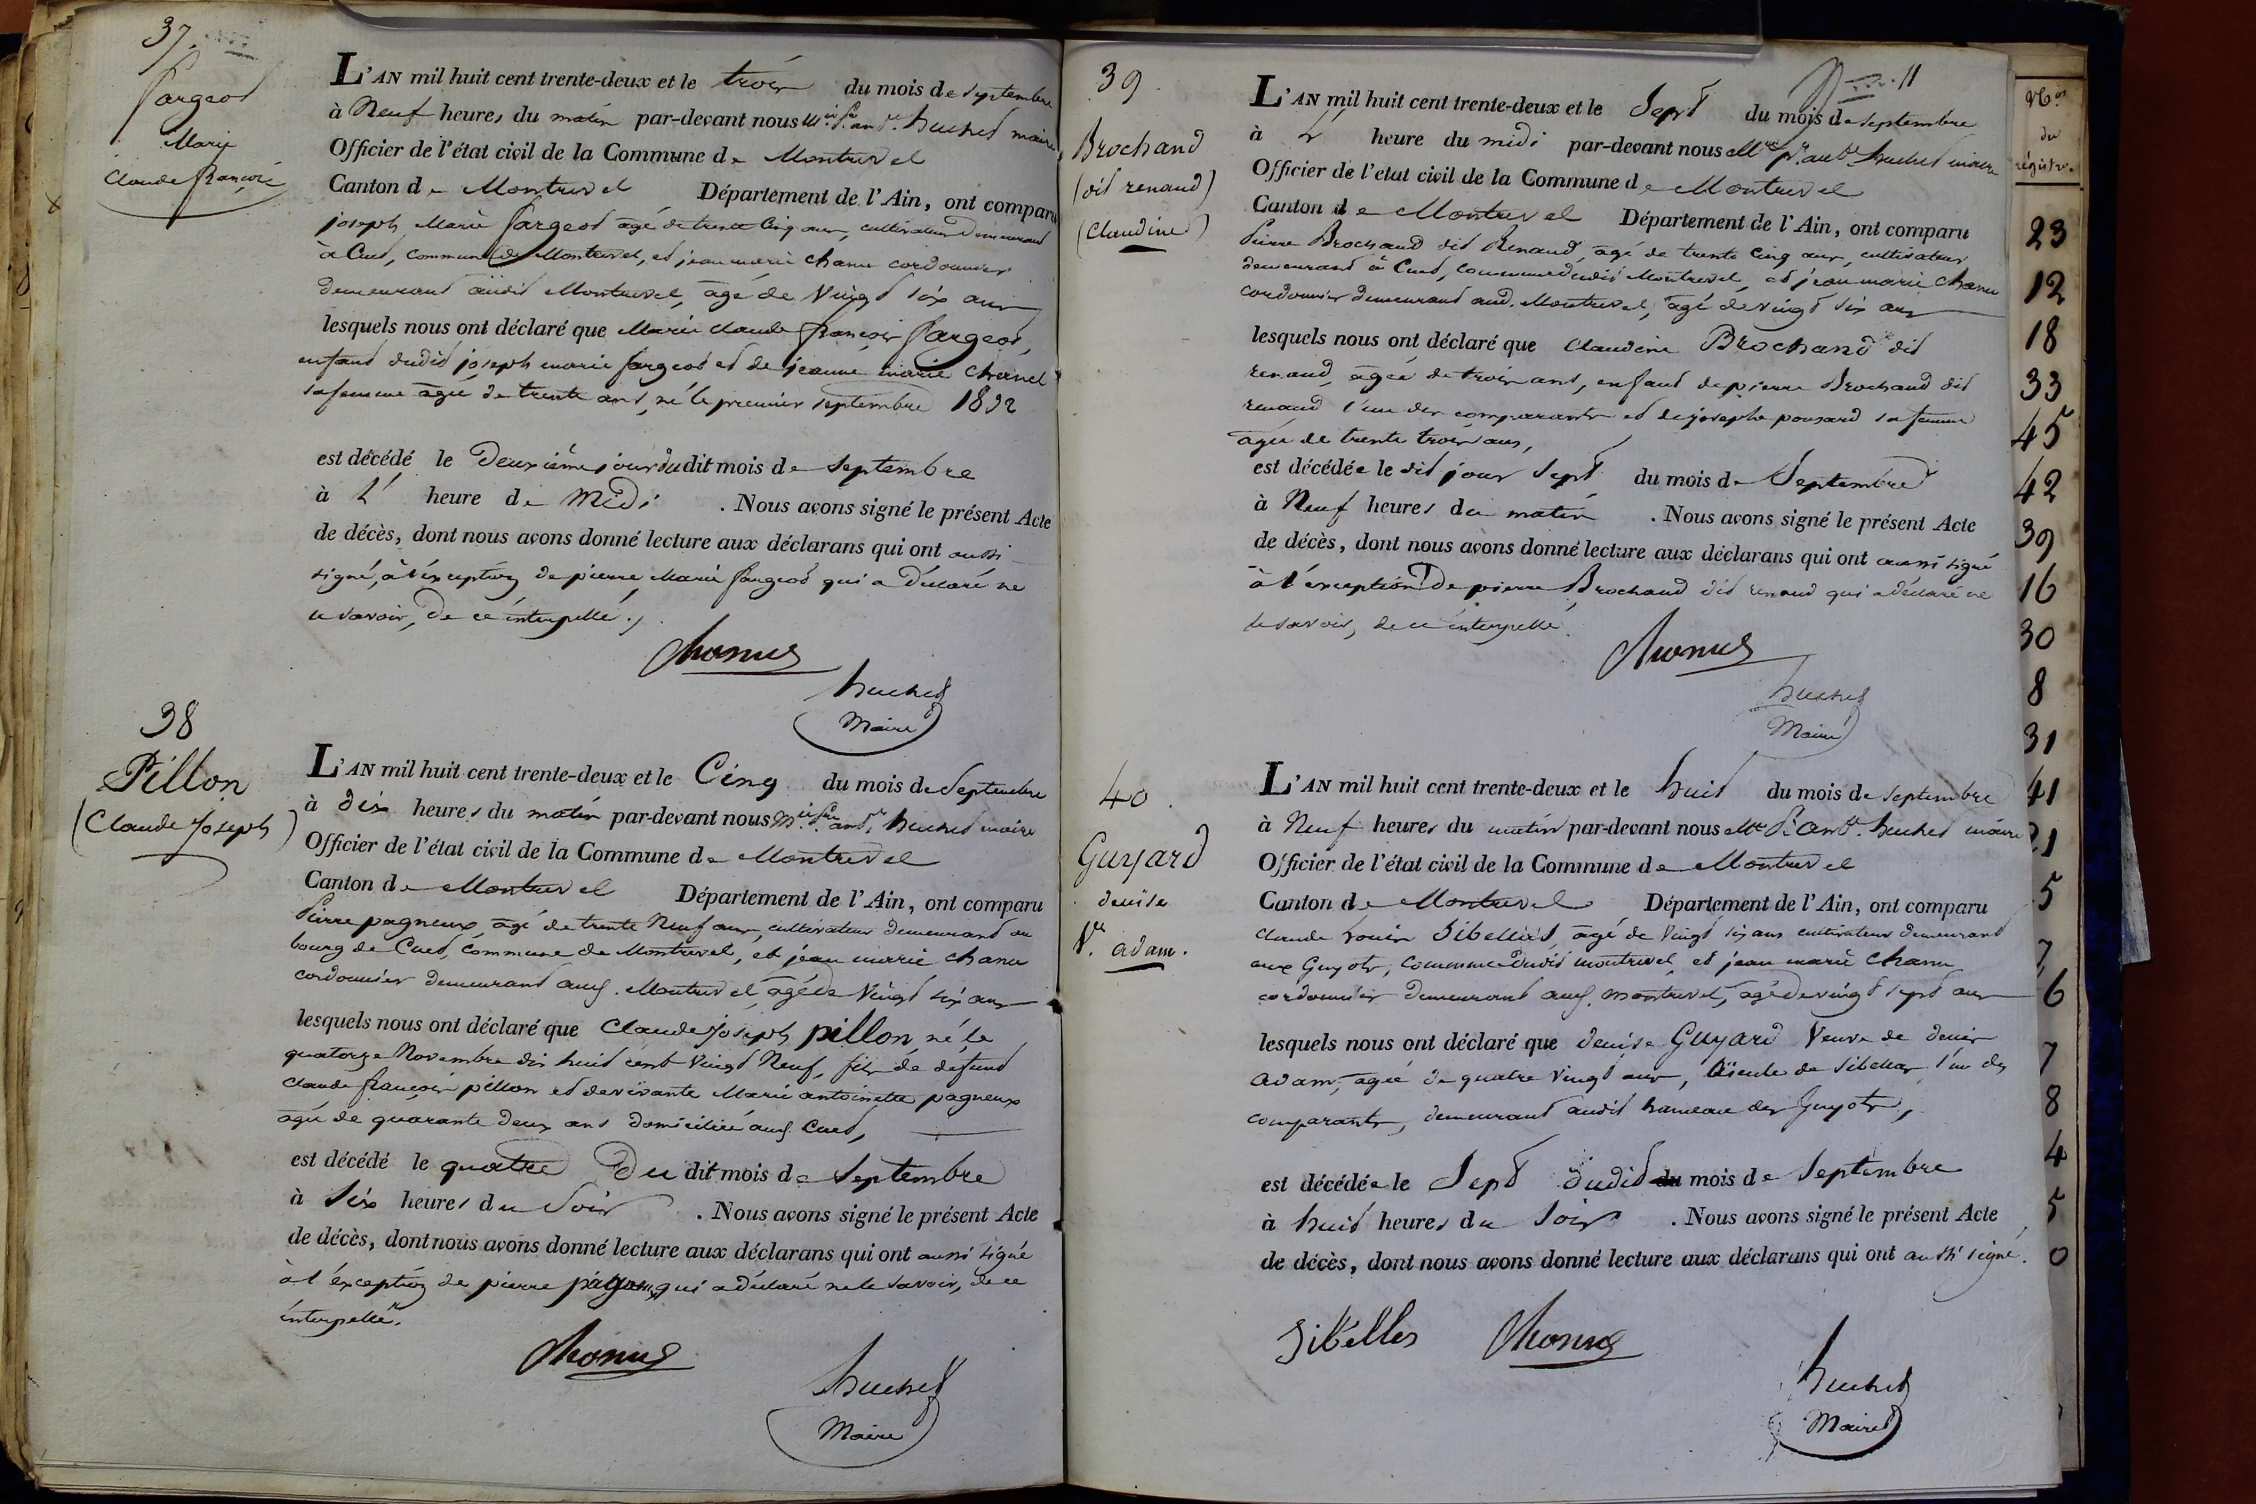 37.
fargeot
Marie
Claude françois
L'AN mil huit cent trente-deux et le trois du mois de septembre
à Neuf heures du matin par-devant nous huchet maire
Officier de l'état civil de la Commune de Montrevel
Canton de Montrevel Département de l'Ain, ont comparu
joseph Marie fargeot agé de trente Cinq ans, cultivateur demeurant
à Cuet, commune de Montrevel, et jean marie chanu cordonnier
demeurant audit Montrevel, agé de Vingt six ans
lesquels nous ont déclaré que Marie claude françois fargeot,
enfant dudit joseph marie fargeot et de jeanne marie
sa femme agée de trente ans, né le premier septembre 1832
est décédé le Deuxième jour du dit mois de septembre
à 1 heure de Midi . Nous avons signé le présent Acte
de décès, dont nous avons donné lecture aux déclarans qui ont aussi
signé, à l'éxception de pierre Marie fargeot qui a déclaré ne
le savoir, de ce interpellé.
Chanus
huchet
Maire
38
Pillon
(Claude Joseph)
L'AN mil huit cent trente-deux et le Cinq du mois de Septembre
à dix heures du matin par-devant nous huchet maire
Officier de l'état civil de la Commune de Montrevel
Canton de Montrevel Département de l'Ain, ont comparu
Pierre pagneux, agé de trente Neuf ans, cultivateur demeurant au
bourg de Cuet, commune de Montrevel, et jean marie chanu
cordonnier demeurant aud. Montrevel agé de Vingt six ans
lesquels nous ont déclaré que Claude Joseph pillon, né le
quatorze Novembre dix huit cent Vingt Neuf, fils de défunt
claude françois pillon et de vivante Marie antoinette pagneux
agée de quarante deux ans domiciliée aud. Cuet,
est décédé le quatre Du dit mois de Septembre
à Six heures du Soir . Nous avons signé le présent Acte
de décès, dont nous avons donné lecture aux déclarans qui ont aussi signé
à l'éxception de pierre pagneux qui a déclaré ne le savoir, de ce
interpellé.
Chanus
huchet
Maire
39
Brochand
(dit renaud)
(Claudine)
11
L'AN mil huit cent trente-deux et le Sept du mois de septembre
à heure du midi par-devant nous huchet maire
Officier de l'etat civil de la Commune de Montrevel
Canton de Montrevel Département de l'Ain, ont comparu
Pierre Brochand dit Renaud, agé de trente Cinq ans, cultivateur
demeurant à Cuet, commune dudit Montrevel, et jean marie chanu
cordonnier demeurant aud. Montrevel, agé de vingt six ans
lesquels nous ont déclaré que Claudine Brochand dit
renaud, agée de trois ans, enfant de pierre Brochand dit
renaud l'un des comparants et de josephe ponsard sa femme
agée de trente trois ans,
est décédée le dit jour Sept du mois de Septembre
à Neuf heures du matin . Nous avons signé le présent Acte
de décès, dont nous avons donné lecture aux déclarans qui ont aussi signé
à l'éxception de pierre Brochand dit renaud qui a déclaré ne
le savoir, de ce interpellé.
Chanus
huchet
Maire
40.
Guyard
denise
Ve. adam.
L'AN mil huit cent trente-deux et le huit du mois de septembre
à Neuf heures du matin par-devant nous huchet maire
Officier de l'état civil de la Commune de Montrevel
Canton de Montrevel Département de l'Ain, ont comparu
claude Louis Sibellas, agé de Vingt six ans cultivateur demeurant
aux Guyots, commune dudit montrevel, et jean marie chanu
cordonnier demeurant aud. montrevel, agé de vingt sept ans
lesquels nous ont déclaré que denise Guyard Veuve de denis
adam, agée de quatre Vingt ans, aïeule de Sibellas l'un des
comparants, demeurant audit hameau des Guyots,
est décédée le Sept dudit mois de Septembre
à huit heures du Soir . Nous avons signé le présent Acte
de décès, dont nous avons donné lecture aux déclarans qui ont aussi signé.
Sibellas Chanus
huchet
Maire
Nos
du
régistre.
23
12
18
33
45
42
39
16
30
8
31
41
21
5
7
6
7
8
4
5
0